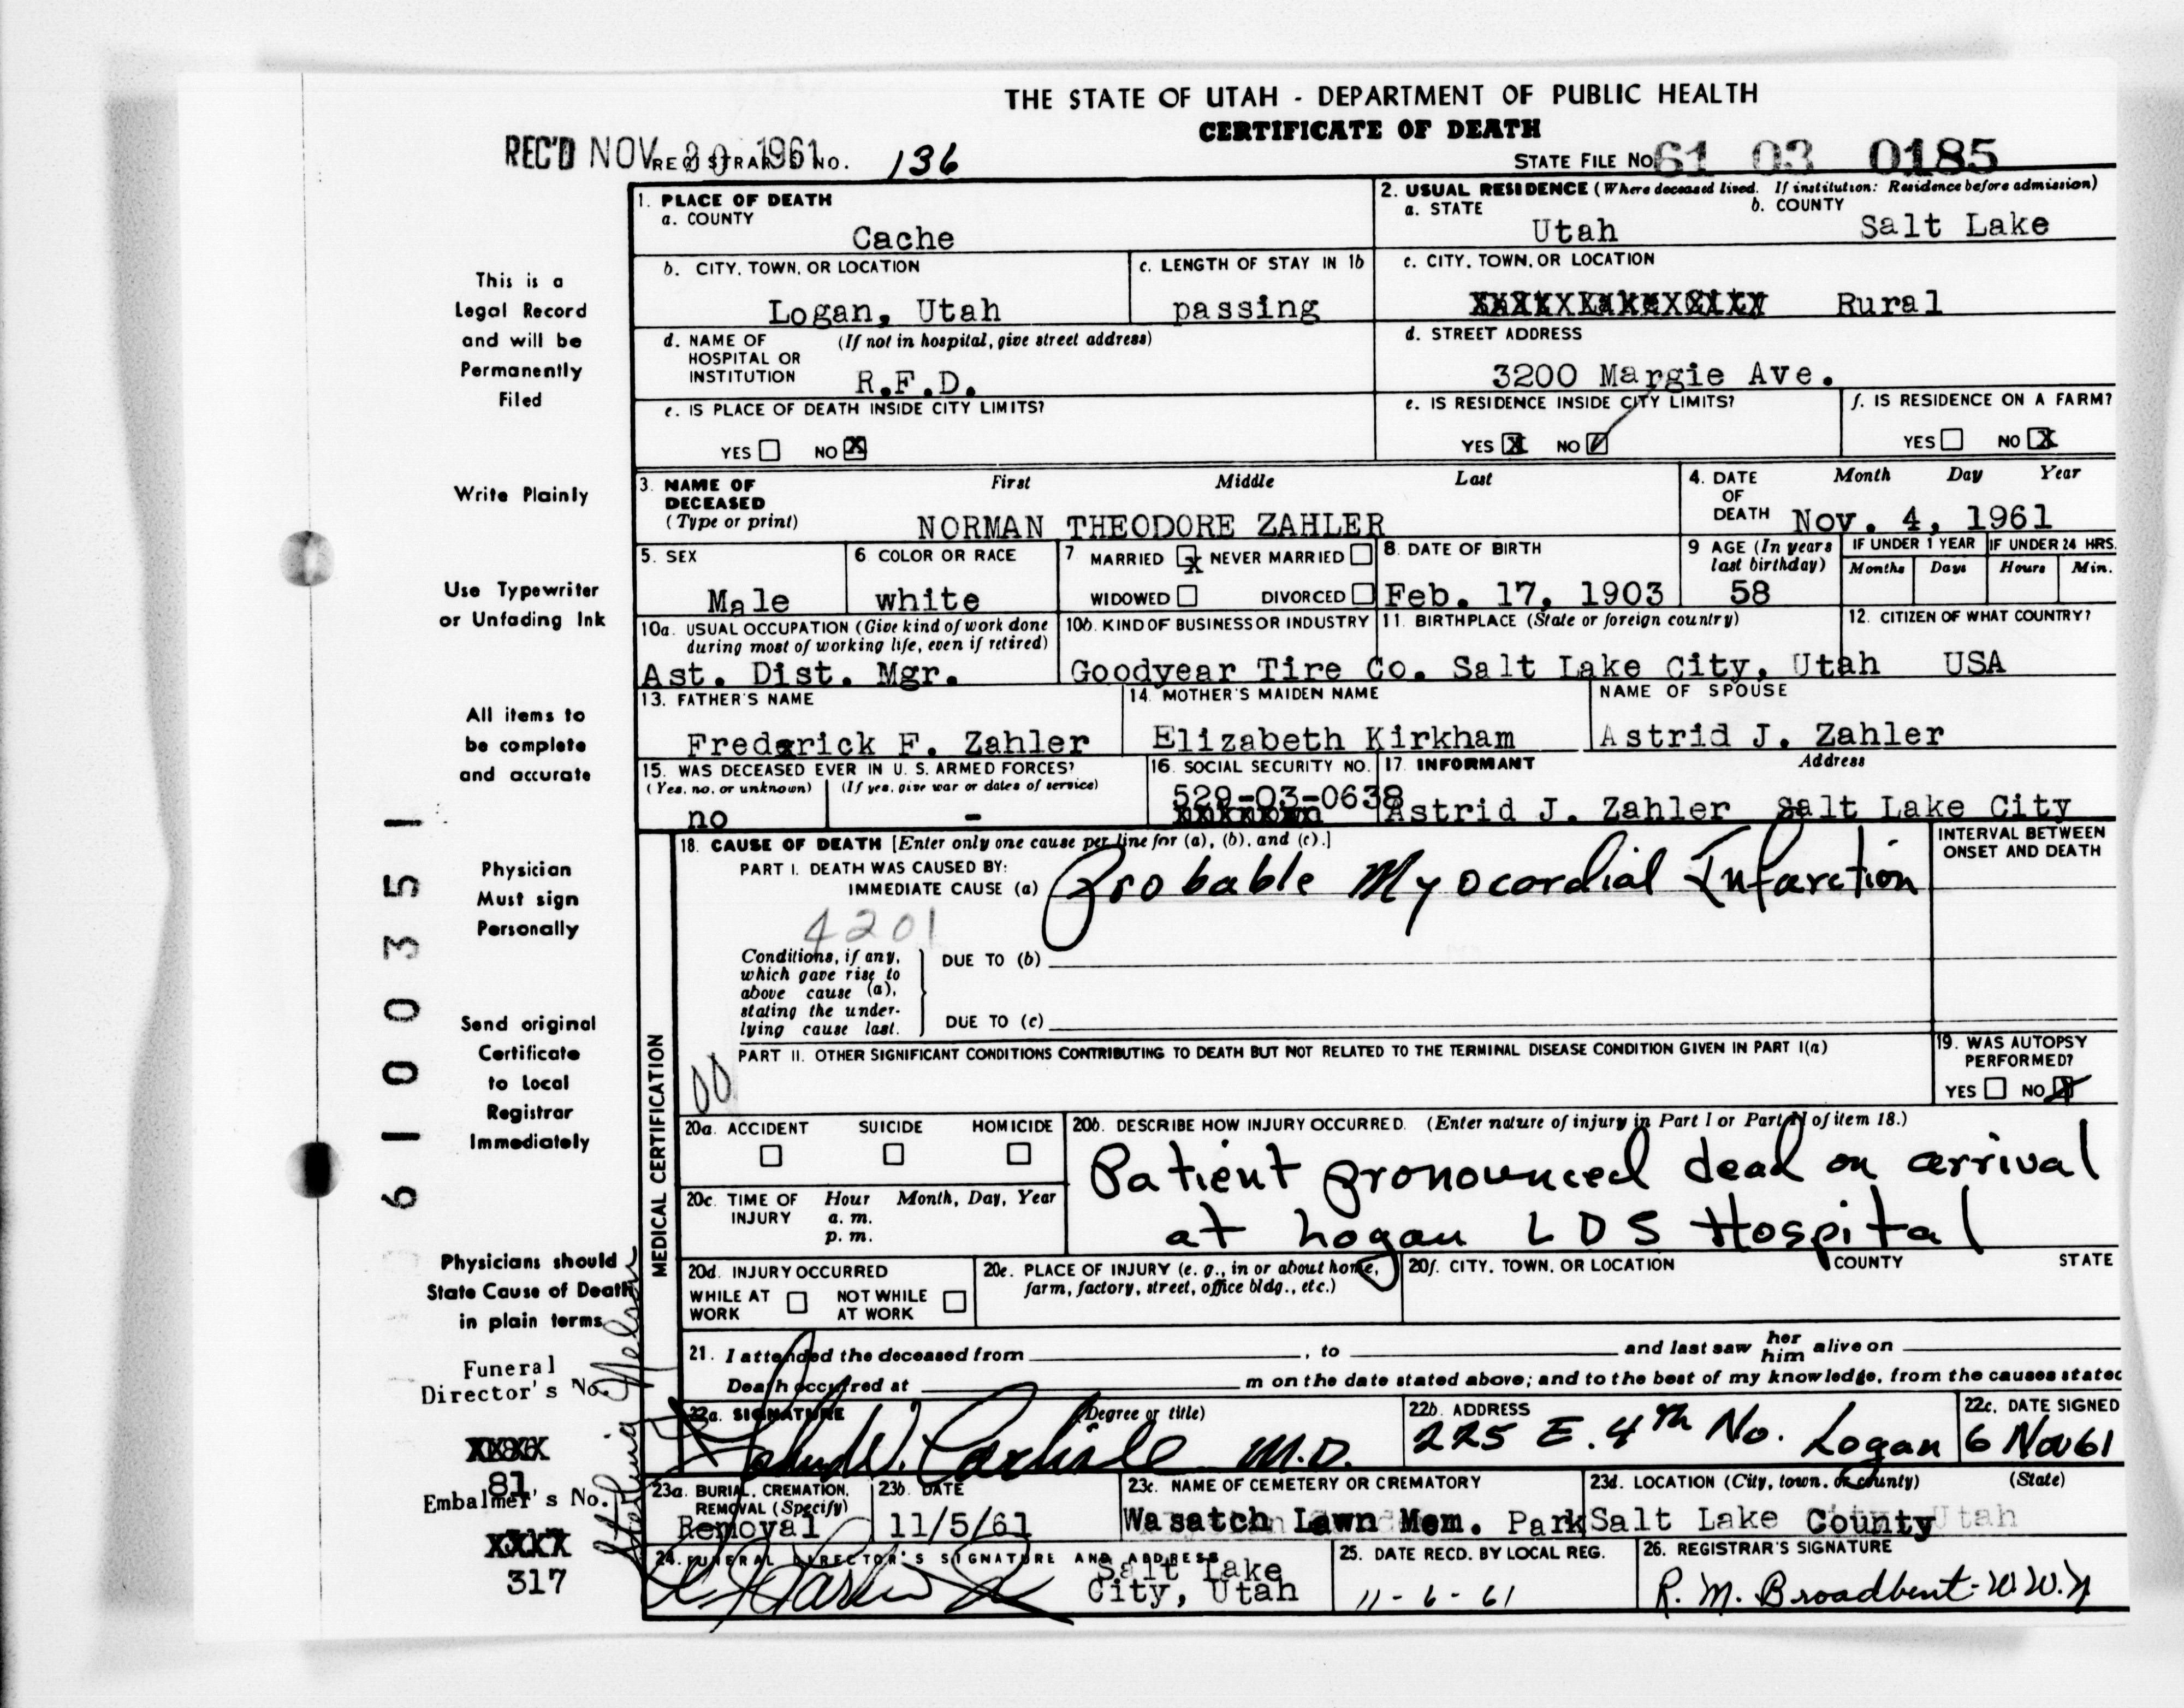 THE STATE OF UTAH - DEPARTMENT OF PUBLIC HEALTH
CERTIFICATE OF DEATH
REC'D NOV 30 1961 REGISTRAR'S NO. 136
STATE FILE NO. 61 03 0185
1. PLACE OF DEATH
a. COUNTY
Cache
2. USUAL RESIDENCE (Where deceased lived. If institution: Residence before admission)
a. STATE
Utah
b. COUNTY
Salt Lake
b. CITY, TOWN, OR LOCATION
Logan, Utah
c. LENGTH OF STAY IN 1b
passing
c. CITY, TOWN, OR LOCATION
Rural
d. NAME OF HOSPITAL OR INSTITUTION
(If not in hospital, give street address)
R.F.D.
d. STREET ADDRESS
3200 Margie Ave.
e. IS PLACE OF DEATH INSIDE CITY LIMITS?
YES NO X
e. IS RESIDENCE INSIDE CITY LIMITS?
YES X NO ✓
f. IS RESIDENCE ON A FARM?
YES NO X
3. NAME OF DECEASED
(Type or print)
First Middle Last
NORMAN THEODORE ZAHLER
4. DATE OF DEATH
Month Day Year
Nov. 4, 1961
5. SEX
Male
6. COLOR OR RACE
white
7 MARRIED X NEVER MARRIED
WIDOWED DIVORCED
8. DATE OF BIRTH
Feb. 17, 1903
9 AGE (In years last birthday)
58
IF UNDER 1 YEAR
Months Days
IF UNDER 24 HRS.
Hours Min.
10a. USUAL OCCUPATION (Give kind of work done during most of working life, even if retired)
Ast. Dist. Mgr.
10b. KIND OF BUSINESS OR INDUSTRY
Goodyear Tire Co.
11. BIRTHPLACE (State or foreign country)
Salt Lake City, Utah
12. CITIZEN OF WHAT COUNTRY?
USA
13. FATHER'S NAME
Frederick F. Zahler
14. MOTHER'S MAIDEN NAME
Elizabeth Kirkham
NAME OF SPOUSE
Astrid J. Zahler
15. WAS DECEASED EVER IN U. S. ARMED FORCES?
(Yes, no, or unknown) (If yes, give war or dates of service)
no -
16. SOCIAL SECURITY NO.
529-03-0638
17. INFORMANT Address
Astrid J. Zahler Salt Lake City
18. CAUSE OF DEATH [Enter only one cause per line for (a), (b), and (c).]
PART I. DEATH WAS CAUSED BY:
IMMEDIATE CAUSE (a)
Probable Myocardial Infarction
INTERVAL BETWEEN ONSET AND DEATH
4201
Conditions, if any,
which gave rise to
above cause (a),
stating the under-
lying cause last.
DUE TO (b)
DUE TO (c)
PART II. OTHER SIGNIFICANT CONDITIONS CONTRIBUTING TO DEATH BUT NOT RELATED TO THE TERMINAL DISEASE CONDITION GIVEN IN PART I(a)
00
19. WAS AUTOPSY PERFORMED?
YES NO X
MEDICAL CERTIFICATION
20a. ACCIDENT SUICIDE HOMICIDE
20b. DESCRIBE HOW INJURY OCCURRED. (Enter nature of injury in Part I or Part II of item 18.)
Patient pronounced dead on arrival
at Logan LDS Hospital
20c. TIME OF INJURY
Hour Month, Day, Year
a. m.
p. m.
20d. INJURY OCCURRED
WHILE AT WORK NOT WHILE AT WORK
20e. PLACE OF INJURY (e. g., in or about home, farm, factory, street, office bldg., etc.)
20f. CITY, TOWN, OR LOCATION COUNTY STATE
21. I attended the deceased from , to and last saw her him alive on
Death occurred at m on the date stated above; and to the best of my knowledge, from the causes stated
22a. SIGNATURE (Degree or title)
John W. Carlisle M.D.
22b. ADDRESS
225 E. 4th No. Logan
22c. DATE SIGNED
6 Nov 61
23a. BURIAL, CREMATION, REMOVAL (Specify)
Removal
23b. DATE
11/5/61
23c. NAME OF CEMETERY OR CREMATORY
Wasatch Lawn Mem. Park
23d. LOCATION (City, town, or county) (State)
Salt Lake County Utah
24. FUNERAL DIRECTOR'S SIGNATURE AND ADDRESS
Salt Lake
City, Utah
25. DATE RECD. BY LOCAL REG.
11-6-61
26. REGISTRAR'S SIGNATURE
R. M. Broadbent-W.W.N
This is a
Legal Record
and will be
Permanently
Filed
Write Plainly
Use Typewriter
or Unfading Ink
All items to
be complete
and accurate
Physician
Must sign
Personally
Send original
Certificate
to Local
Registrar
Immediately
Physicians should
State Cause of Death
in plain terms
Funeral
Director's No.
81
Embalmer's No.
317
Sterling Nelson
6100351